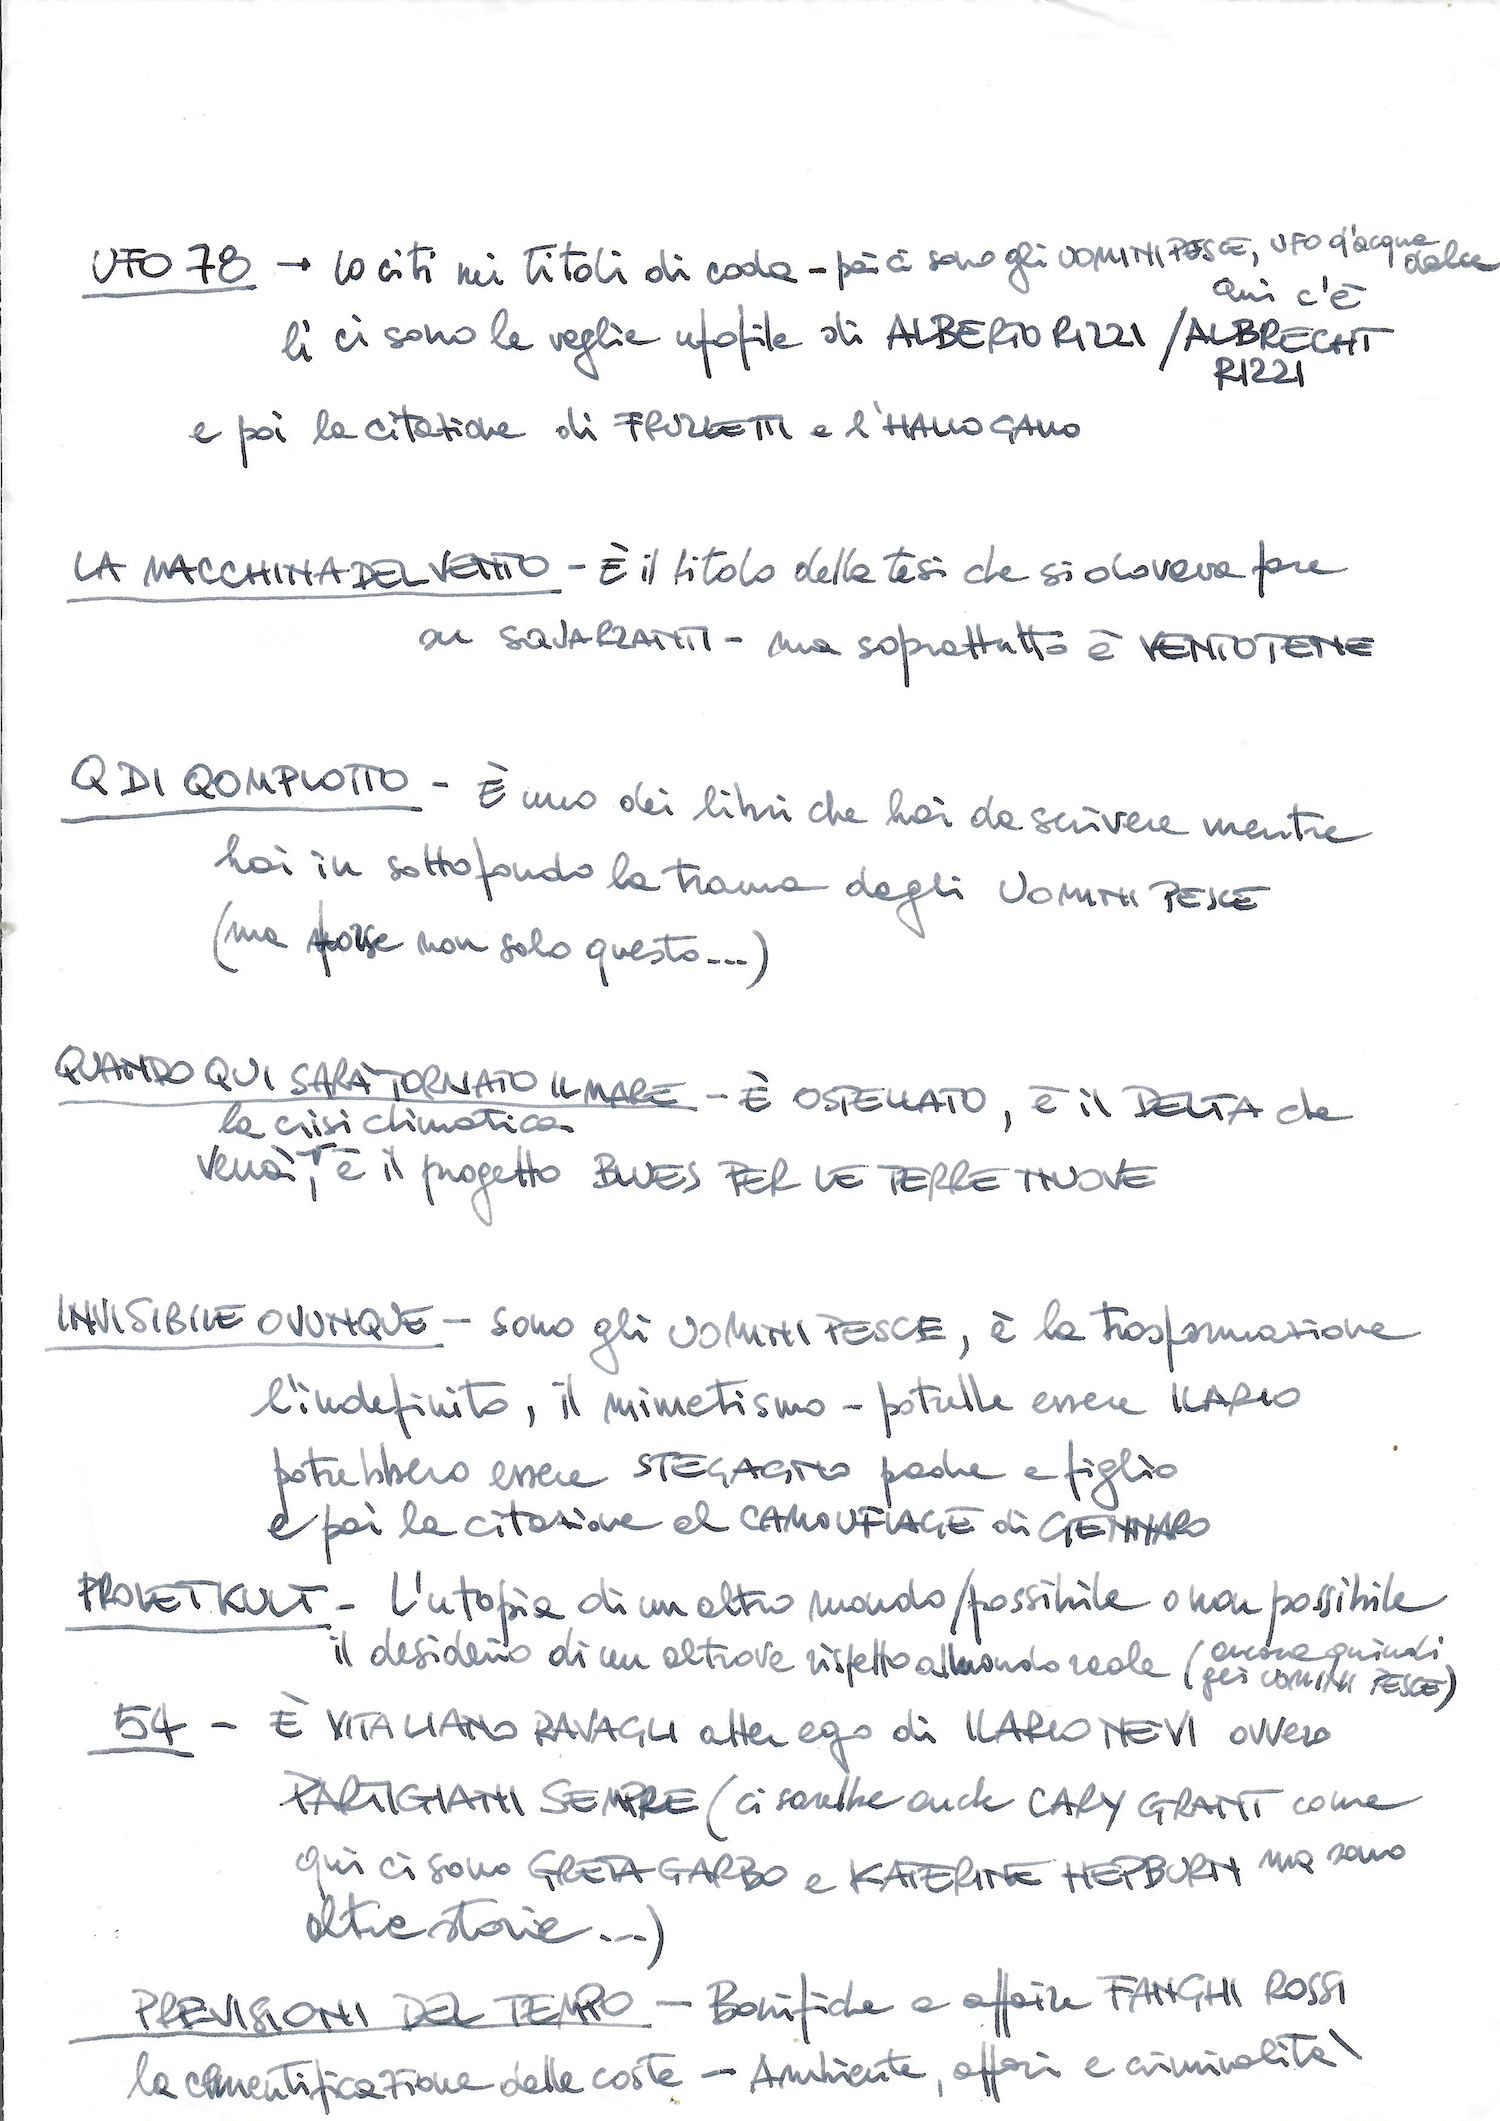 UFO 78 → lo citi nei titoli di coda – poi ci sono gli UOMINI PESCE, UFO d'acqua dolce
qui c'è
lì ci sono le veglie ufofile di ALBERTO RIZZI / ALBRECHT RIZZI
e poi la citazione di FRIZZETTI e l'HALLOGALLO
LA MACCHINA DEL VENTO – È il titolo della tesi che si doveva fare
su SQUARZANTI – ma soprattutto è VENTOTENE
Q DI QOMPLOTTO – È uno dei libri che hai da scrivere mentre
hai in sottofondo la trama degli UOMINI PESCE
(ma forse non solo questo...)
QUANDO QUI SARÀ TORNATO IL MARE – È OSTELLATO, è il DELTA che
la crisi climatica
verrà, è il progetto BLUES PER LE TERRE NUOVE
INVISIBILE OVUNQUE – sono gli UOMINI PESCE, è la trasformazione
l'indefinito, il mimetismo – potrebbe essere ILARIO
potrebbero essere STEGAGNO padre e figlio
e poi la citazione al CAMOUFLAGE di GENNARO
PROLETKULT – L'utopia di un altro mondo/possibile o non possibile
il desiderio di un altrove rispetto al mondo reale (ancora quindi
gli UOMINI PESCE)
54 – È VITALIANO RAVAGLI alter ego di ILARIO NEVI ovvero
PARTIGIANI SEMPRE (ci sarebbe anche CARY GRANT come
qui ci sono GRETA GARBO e KATERINE HEPBURN ma sono
altre storie...)
PREVISIONI DEL TEMPO – Bonifiche e affaire FANGHI ROSSI
la cementificazione delle coste – Ambiente, affari e criminalità